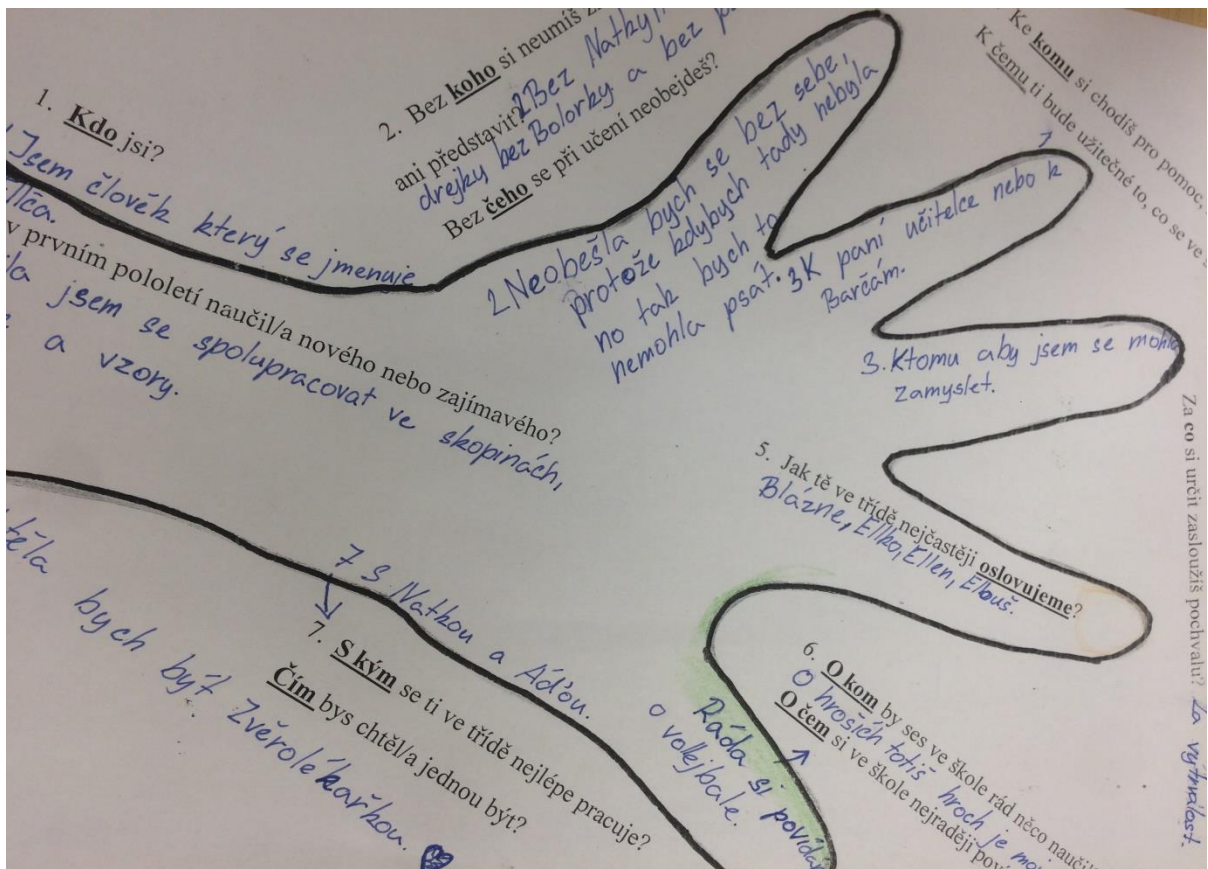 1. Kdo jsi?
Jsem člověk který se jmenuje
v prvním pololetí naučil/a nového nebo zajímavého?
jsem se spolupracovat ve skopinách,
a vzory.
2. Bez koho si neumíš
ani představit? 2 Bez
drejky, bez Bolorky a bez
Bez čeho se při učení neobejdeš?
2 Neobešla bych se bez sebe,
protože kdybych tady nebyla
no tak bych to
nemohla psát.
Ke komu si chodíš pro pomoc,
K čemu ti bude užitečné to, co se ve
3 K paní učitelce nebo k
Barčám.
3. Ktomu aby jsem se mohla
zamyslet.
Za co si určit zasloužíš pochvalu? Za
5. Jak tě ve třídě nejčastěji oslovujeme?
Blázne, Elko, Ellen, Elouš.
6. O kom by ses ve škole rád něco naučil
O hroších totiš hroch je
O čem si ve škole nejraději
Ráda si povídám
o vollejbale.
7 S Natkou a Áďou.
7. S kým se ti ve třídě nejlépe pracuje?
Čím bys chtěl/a jednou být?
bych být Zvěrolékařkou.